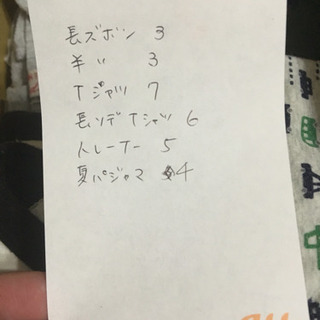 長ズボン 3
半〃 3
Tジャツ 7
長ソデTシャツ 6
トレーナー 5
夏パジャマ 4